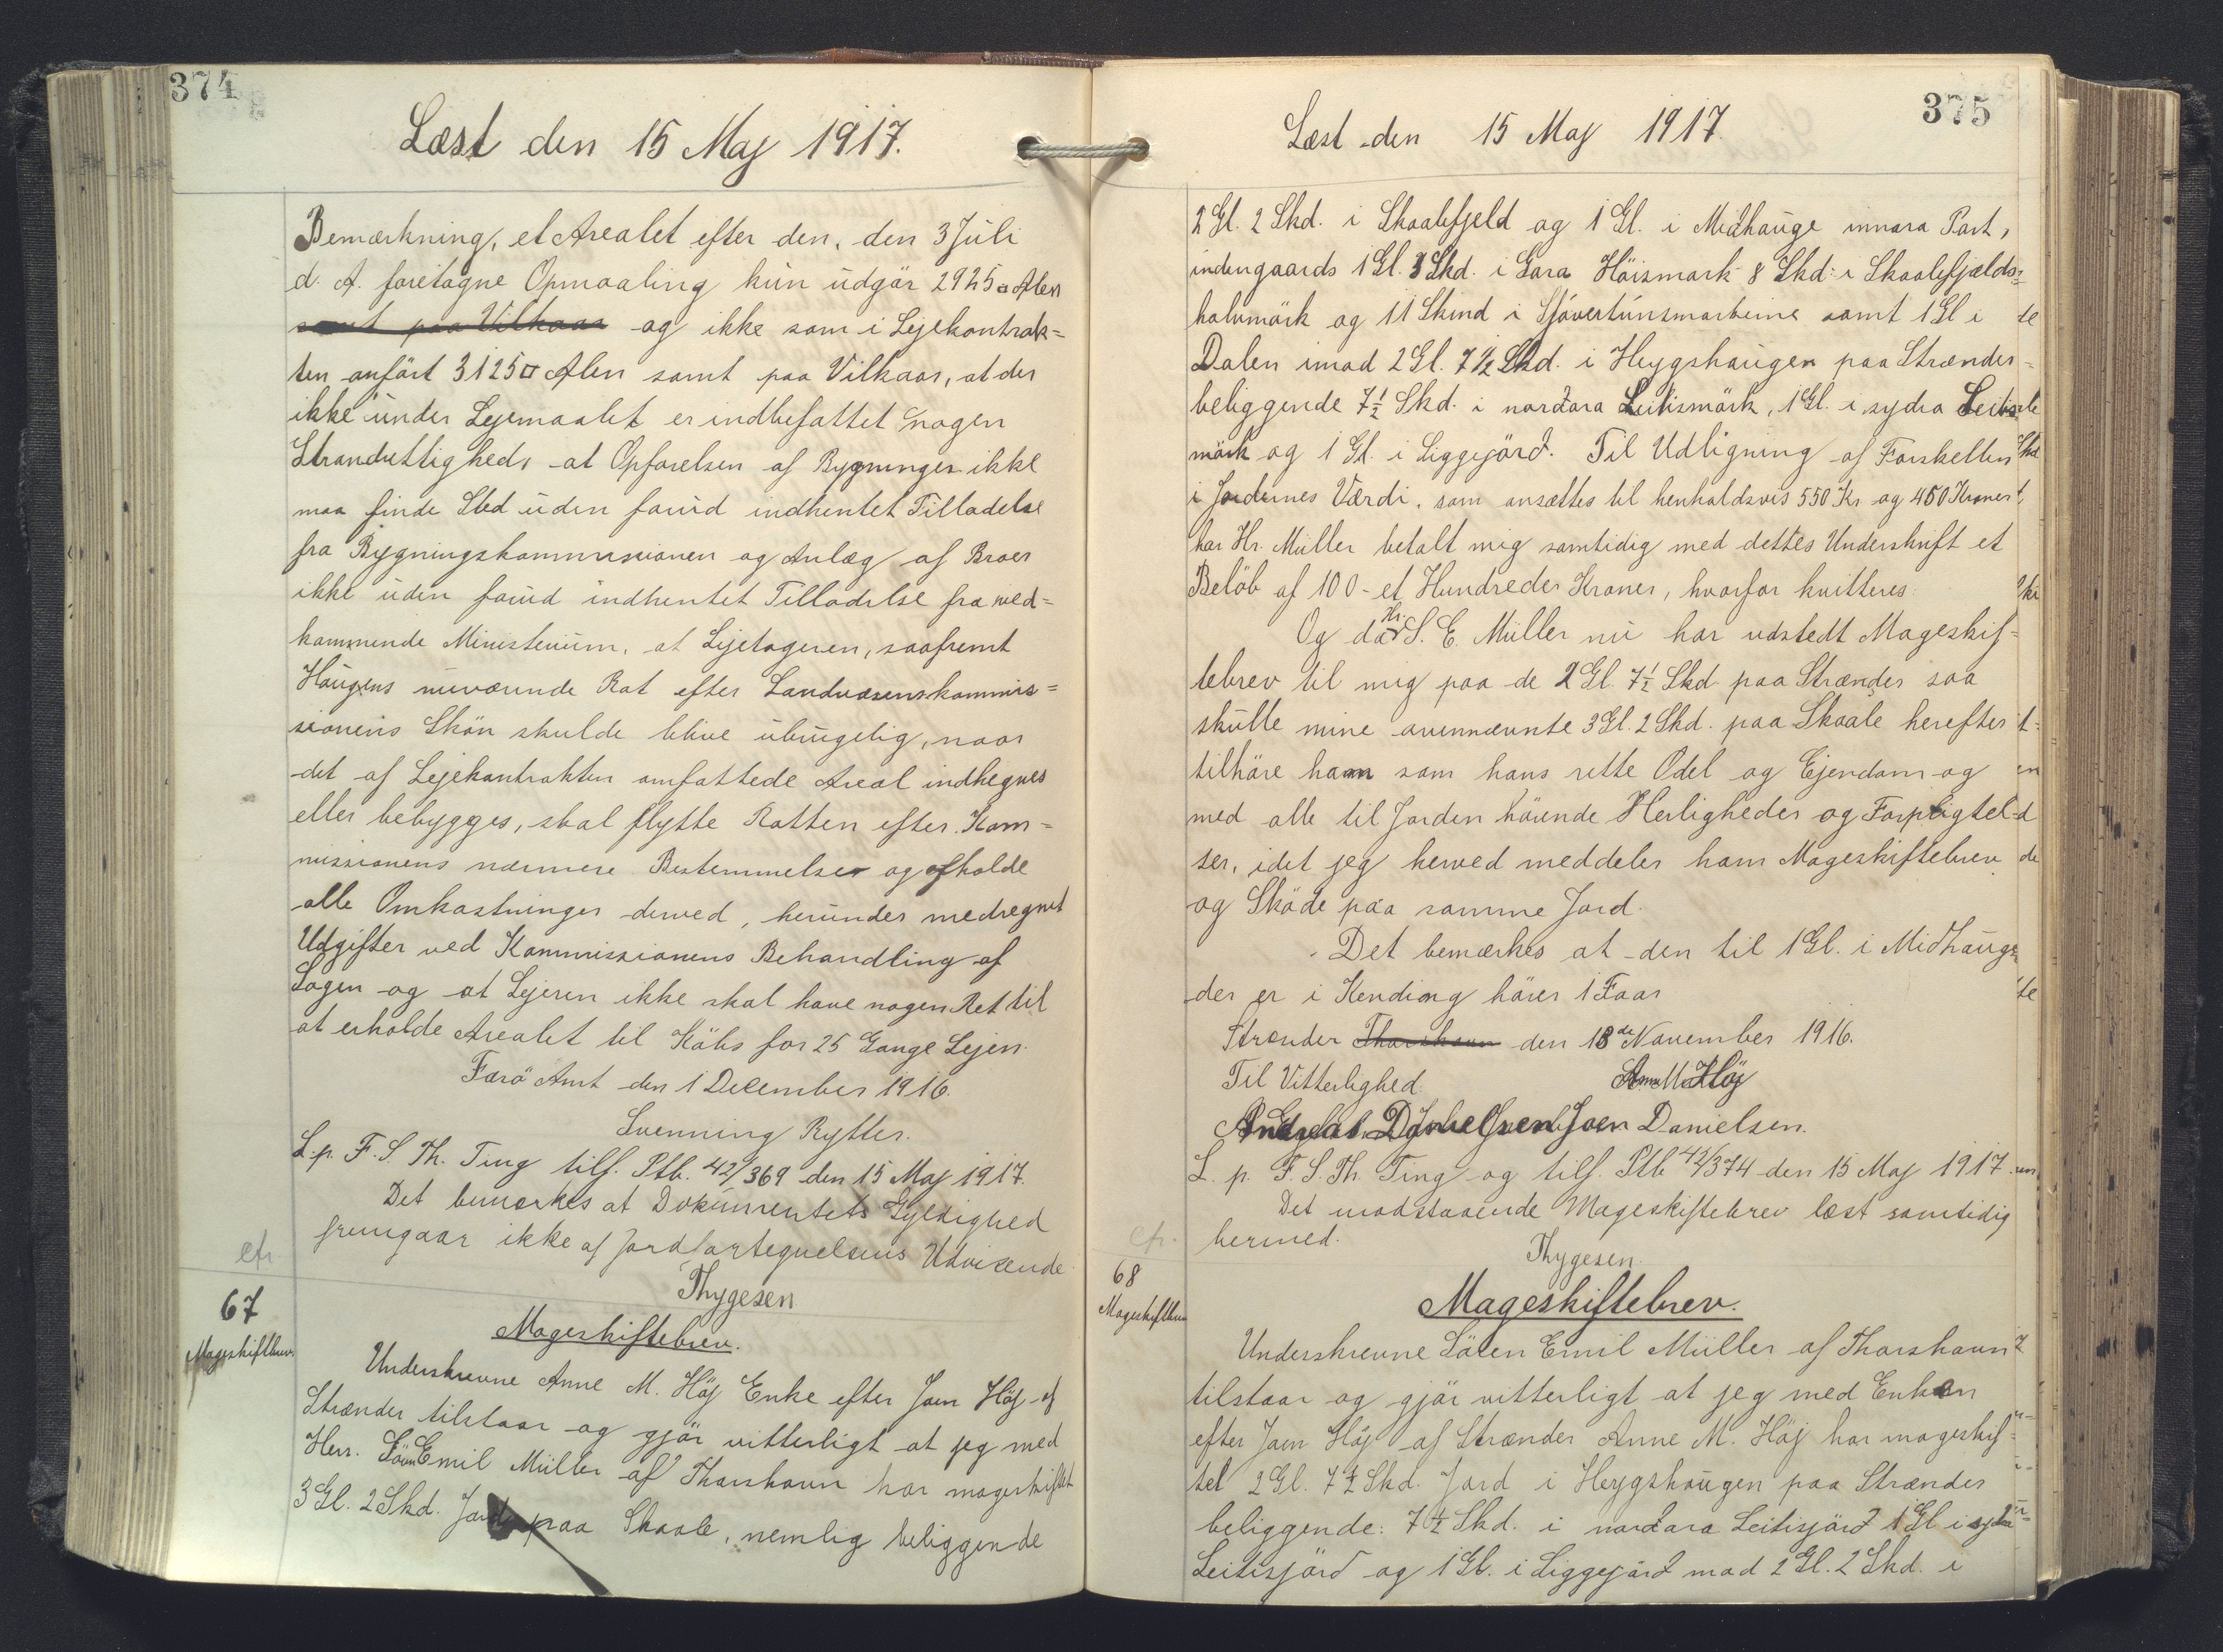 374
Læst den 15 Maj 1917.
Bemærkning, at Arealet efter den, den 3 Juli
d. A. foretagne Opmaaling kun udgör 2925 □ Alen
samt paa Vilkaar og ikke som i Lejekontrak=
ten anfört 3125 □ Alen samt paa Vilkaar, at der
ikke under Lejemaalet er indbefattet nogen
Strandrettighed, at Opförelsen af Bygninger ikke
maa finde Sted uden forud indhentet Tilladelse
fra Bygningskommissionen og Anlæg af Broer
ikke uden forud indhentet Tilladelse fra ved=
kommende Ministerium, at Lejetageren, saafremt
Haugens nuværende Ræt efter Landvæsenskommis=
sionens Skön skulde blive ubrugelig, naar
det af Lejekontrakten omfattede Areal indhegnes
eller bebygges, skal flytte Rætten efter Kom=
missionens nærmere Bestemmelser og afholde
alle Omkostninger derved, herunder medregnet
Udgifter ved Kommissionens Behandling af
Sagen og at Lejeren ikke skal have nogen Ret til
at erholde Arealet til Köbs for 25 Gange Lejen.
Færö Amt den 1 December 1916.
Svenning Rytter.
L. p. F. S. Th. Ting tilf. Ptb. 42/369 den 15 Maj 1917.
Det bemærkes at Dokumentets Gyldighed
fremgaar ikke af Jordfortegnelsens Udvisende
Thygesen
cfr.
67
Mageskiftebrev.
Mageskiftebrev.
Underskrevne Anne M. Höj Enke efter Joen Höj af
Strænder tilstaar og gjör vitterligt at jeg med
Herr. Sören Emil Müller af Thorshavn har mageskiftet
3 Gl. 2 Skd. Jord paa Skaale, nemlig beliggende
375
Læst den 15 Maj 1917.
2 Gl. 2 Skd. i Skaalefjeld og 1 Gl. i Miðhauge innara Part,
indengaards 1 Gl. 3 Skd. i Gara Höismark 8 Skd. i Skaalefjælds=
halvmörk og 11 Skind i Sjövertúnsmarkine samt 1 Gl i
Dalen imod 2 Gl. 7 1/2 Skd. i Heygshaugen paa Strænder
beliggende 7 1/2 Skd. i norðara Leitismörk, 1 Gl. i sydra Leitis
mörk og 1 Gl. i Liggjörð. Til Udligning af Forskellen
i Jordernes Værdi, som ansættes til henholdsvis 550 Kr og 450 Kroner
har Hr. Müller betalt mig samtidig med dettes Underskrift et
Belöb af 100 - et Hundrede Kroner, hvorfor kvitteres
Og da Hr. S. E. Müller nu har udstedt Mageskif=
tebrev til mig paa de 2 Gl. 7 1/2 Skd. paa Strænder saa
skulle mine ovennævnte 3 Gl. 2 Skd. paa Skaale herefter
tilhöre ham som hans rette Odel og Ejendom og
med alle til Jorden hörende Herligheder og Forpligtel
ser, idet jeg herved meddeler ham Mageskiftebrev
og Sköde paa samme Jord.
Det bemærkes at den til 1 Gl. i Miðhauge
der er i Kending hörer 1 Faar
Strænder Thorshavn den 18de November 1916.
Til Vitterlighed. Anne M. Höj
Joen Danielsen.
L. p. F. S. Th. Ting og tilf. Ptb 42/374 den 15 Maj 1917.
Det modstaaende Mageskiftebrev læst samtidig
hermed.
Thygesen.
cfr.
68
Mageskiftebrev
Mageskiftebrev.
Underskrevne Sören Emil Müller af Thorshavn
tilstaar og gjör vitterligt at jeg med Enken
efter Joen Höj af Strænder Anne M. Höj har mageskif=
tet 2 Gl. 7 1/2 Skd. Jord i Heygshaugen paa Strænder
beliggende: 7 1/2 Skd. i norðara Leitisjörð 1 Gl i sydra
Leitisjörð og 1 Gl. i Liggejörð mod 2 Gl. 2 Skd. i